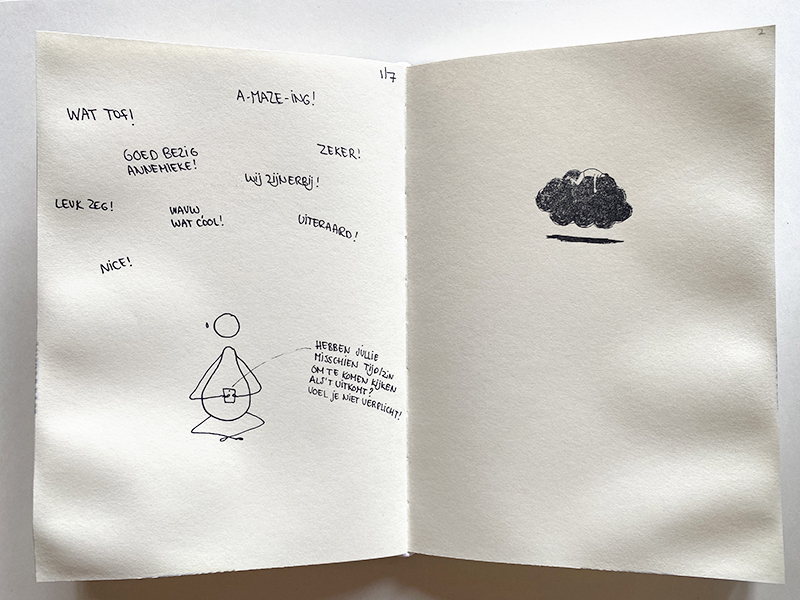 1/7
A-MAZE-ING!
WAT TOF!
GOED BEZIG
ANNEMIEKE!
ZEKER!
WIJ ZIJN ERBIJ!
LEUK ZEG!
WAUW
WAT COOL!
UITERAARD!
NICE!
HEBBEN JULLIE
MISSCHIEN TIJD/ZIN
OM TE KOMEN KIJKEN
ALS'T UITKOMT?
VOEL JE NIET VERPLICHT!
2